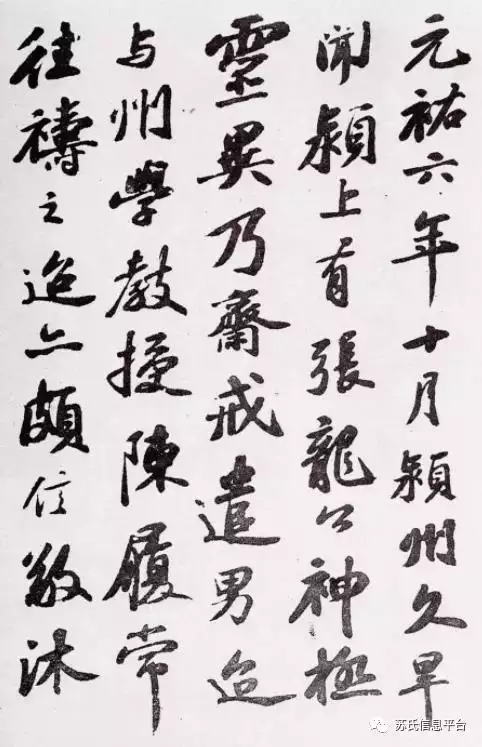 元祐六年十月潁州久旱
聞潁上有張龍公神極
靈異乃齋戒遣男迨
与州學教授陳履常
往禱之迨亦頗信敬沐
苏氏信息平台